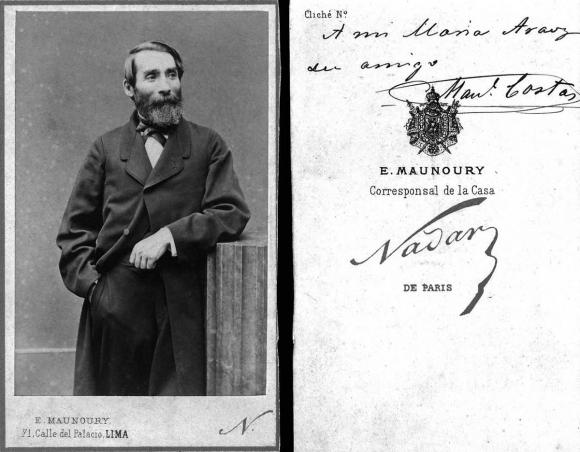 E. MAUNOURY.
71, Calle del Palacio, LIMA
N.
Cliché Nº
A mi Maria Arauz
su amigo
Manl. Costas
E. MAUNOURY
Corresponsal de la Casa
Nadar
DE PARIS